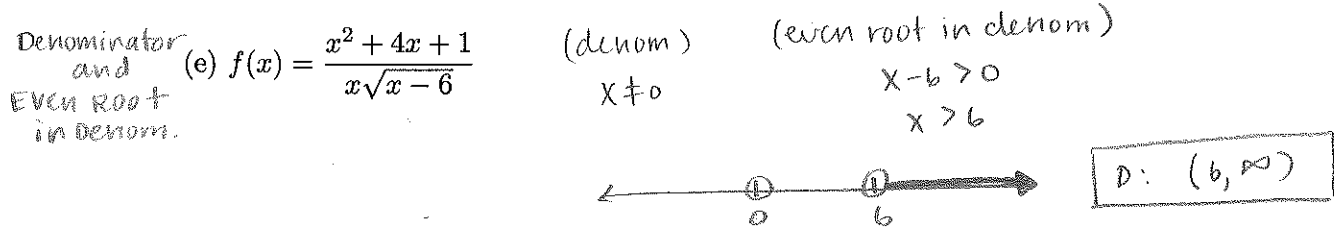 Denominator
and
Even Root
in Denom.
(e) f(x) = \frac{x^2 + 4x + 1}{x\sqrt{x - 6}}
(denom)
x ≠ 0
(even root in denom)
x - 6 > 0
x > 6
0 6
D: (6, ∞)